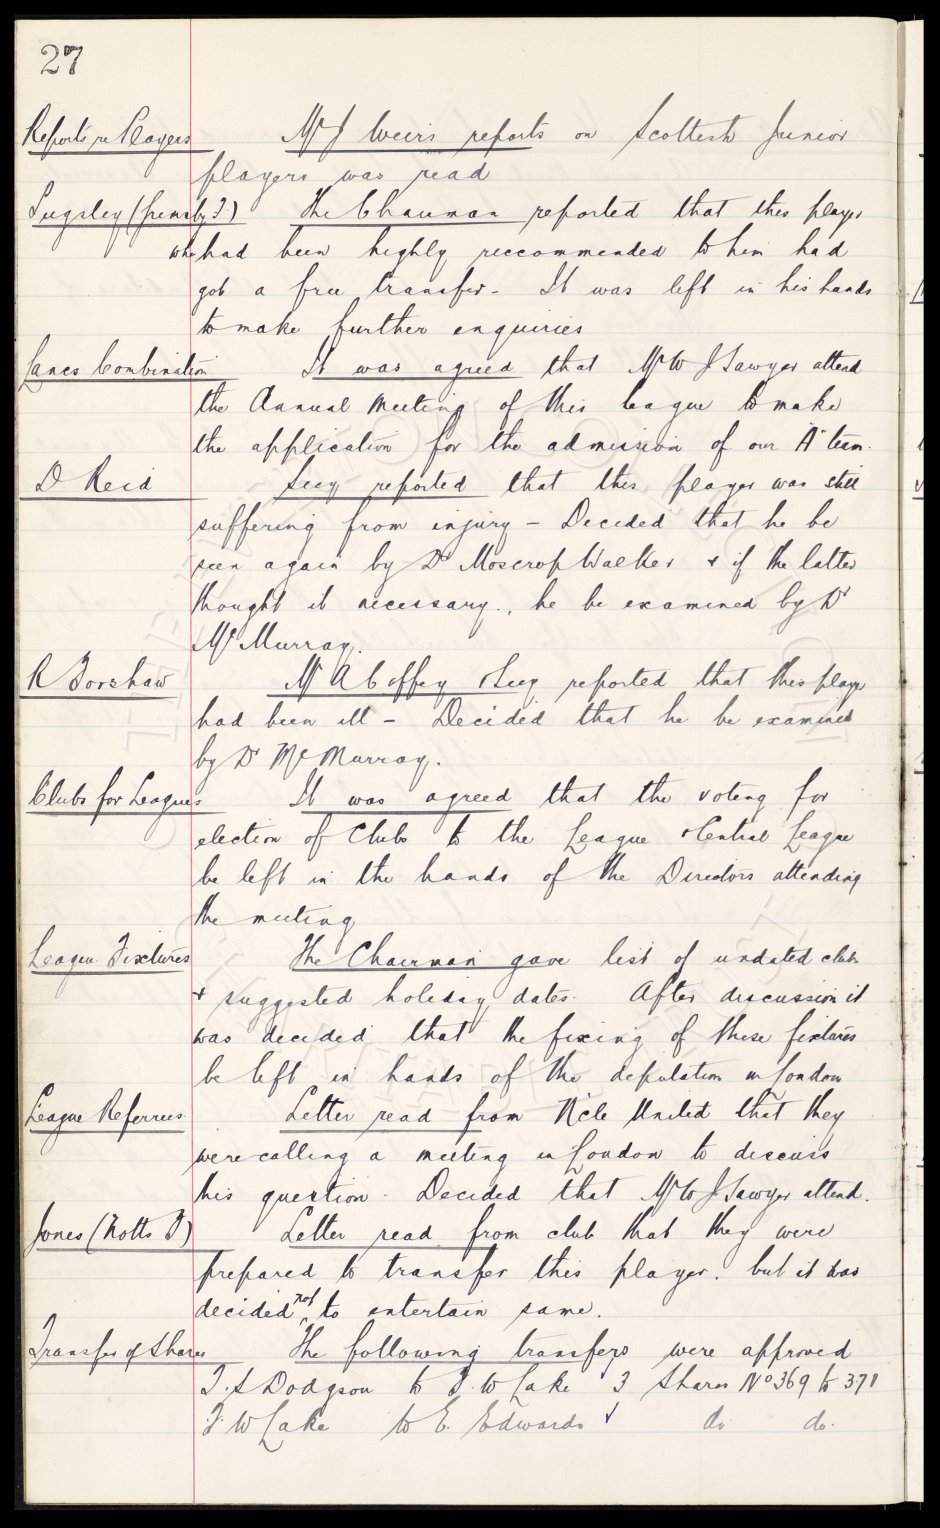 27
Reports re Players Mr J Weirs reports on Scottish Junior
players was read
Pugsley (Grimsby T) The Chairman reported that this player
who had been highly reccommended to him had
got a free transfer - It was left in his hands
to make further enquiries
Lancs Combination It was agreed that Mr W J Sawyer attend
the Annual Meeting of this League to make
the application for the admission of our "A" team.
D Reid Secy reported that this player was still
suffering from injury - Decided that he be
seen again by Dr Moscrop Walker & if the latter
thought it necessary, he be examined by Dr
McMurray.
R Forshaw Mr A Coffey & Secy reported that this player
had been ill - Decided that he be examined
by Dr McMurray.
Clubs for Leagues It was agreed that the voting for
election of Clubs to the League & Central League
be left in the hands of the Directors attending
the meeting
League Fixtures The Chairman gave list of undated clubs
& suggested holiday dates. After discussion it
was decided that the fixing of these fixtures
be left in hands of the deputation in London
League Referees Letter read from N'cle United that they
were calling a meeting in London to discuss
this question. Decided that Mr W J Sawyer attend.
Jones (Notts F) Letter read from club that they were
prepared to transfer this player. but it was
decided not to entertain same.
Transfer of Shares The following transfers were approved
T. S Dodgson to F. W Lake 3 Shares No 369 to 371
F W Lake to E. Edwards do do.